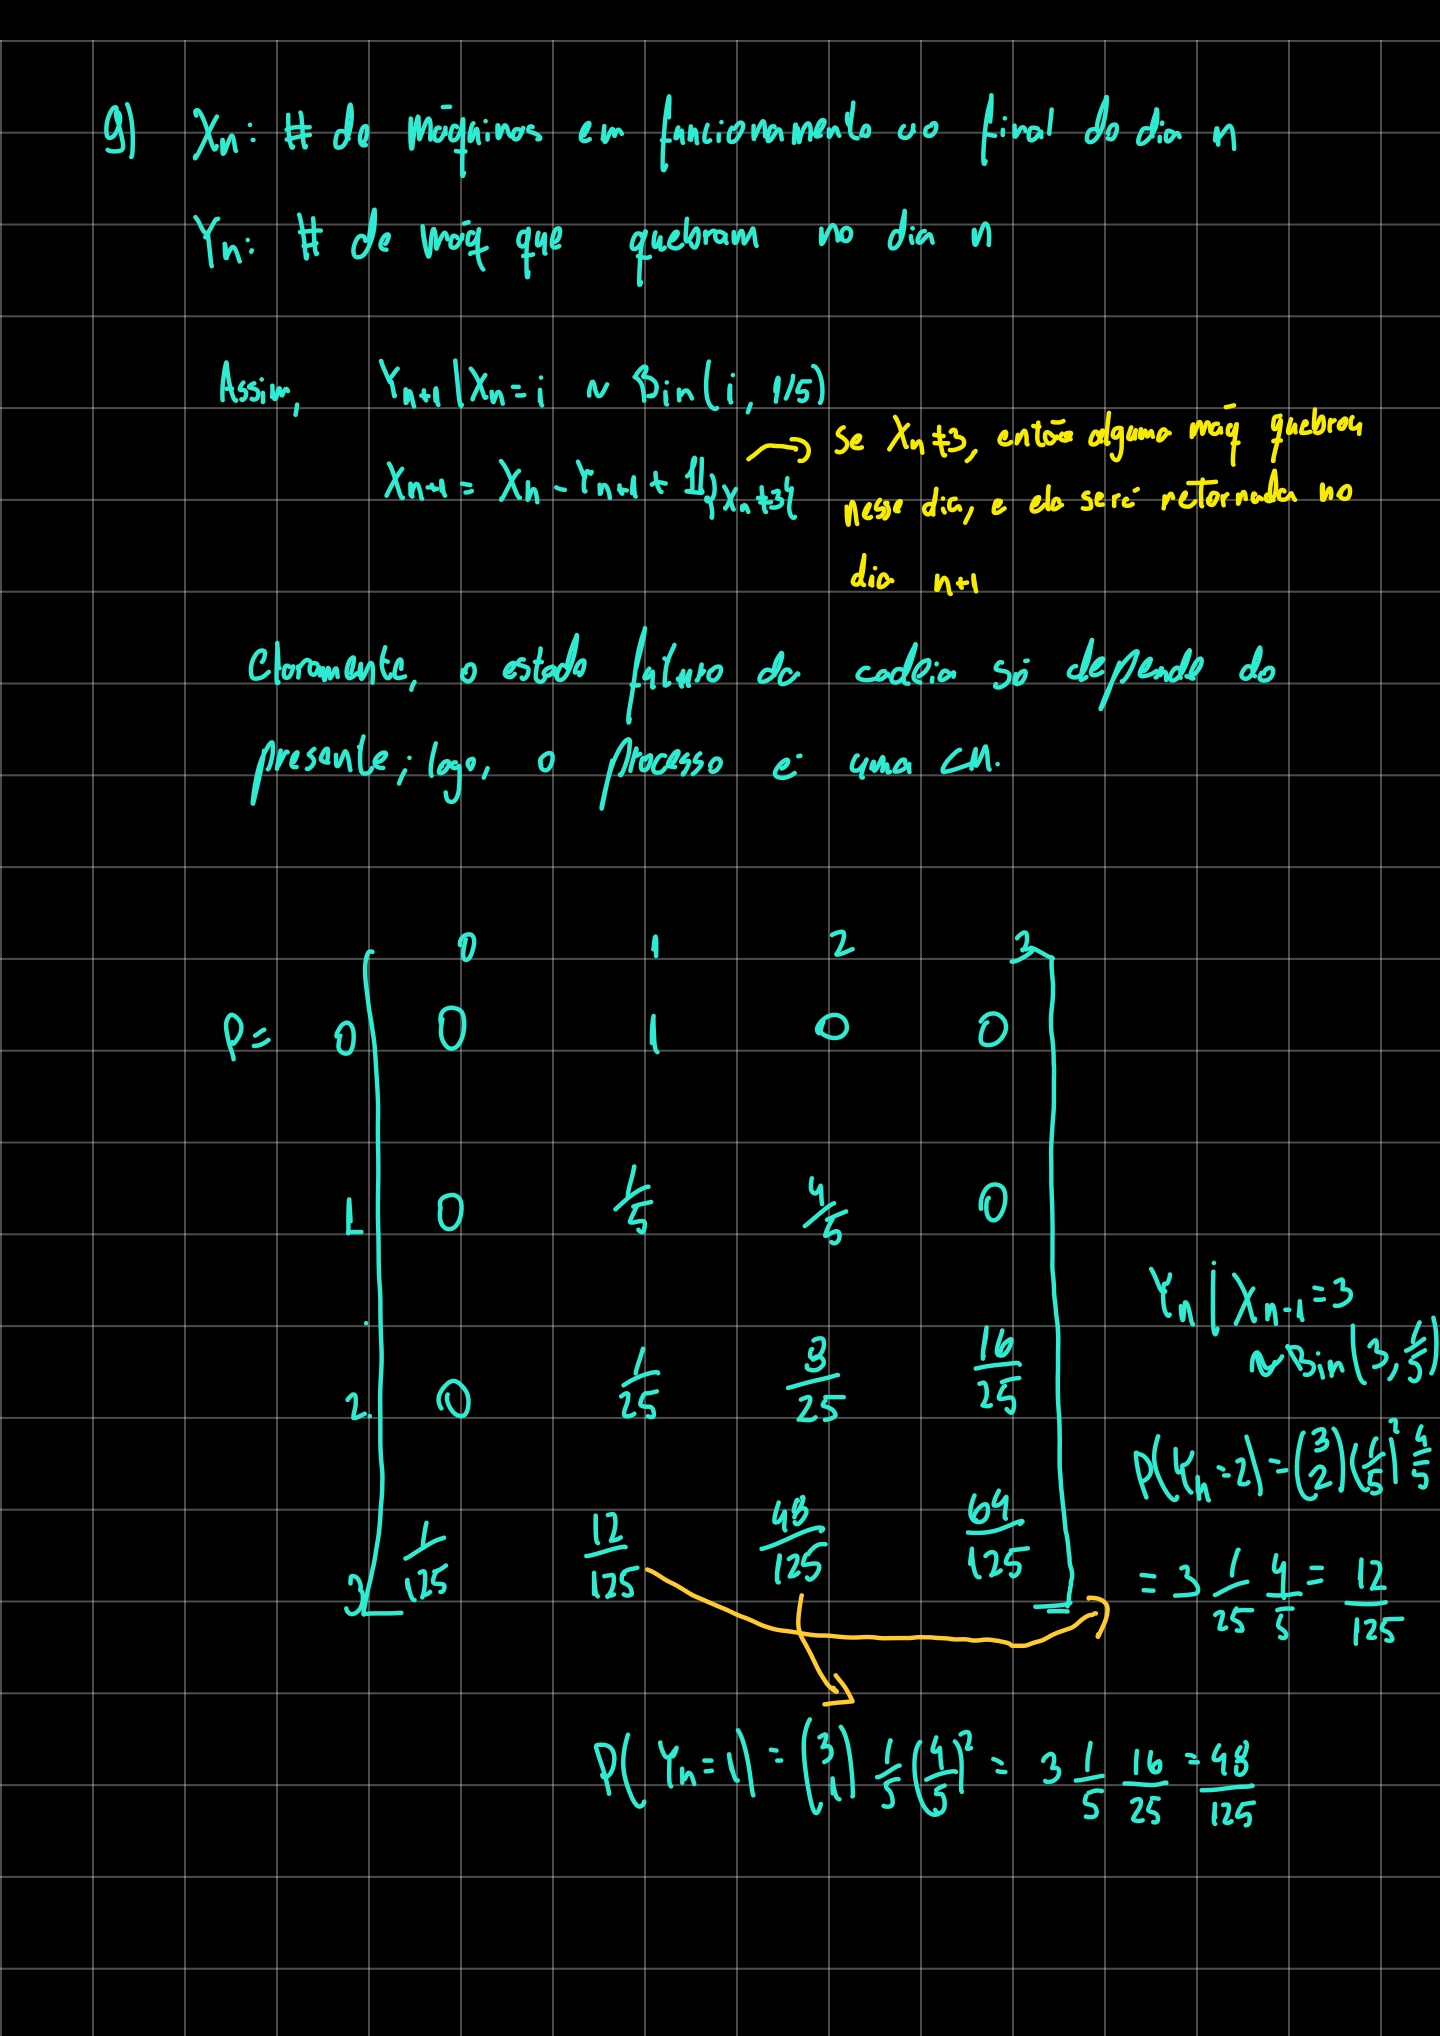 9) Xn: # de máquinas em funcionamento ao final do dia n
Yn: # de máq que quebram no dia n
Assim, Yn+1 | Xn = i ~ Bin(i, 1/5)
Xn+1 = Xn - Yn+1 + 1{Xn ≠ 3}
se Xn ≠ 3, então alguma máq quebrou
nesse dia, e ela será retornada no
dia n+1
Claramente, o estado futuro da cadeia só depende do
presente; logo, o processo é uma CM.
0 1 2 3
P = 0 0 1 0 0
1 0 1/5 4/5 0
2 0 1/25 8/25 16/25
3 1/125 12/125 48/125 64/125
Yn | Xn-1 = 3
~ Bin(3, 1/5)
P(Yn = 2) = (3 2) (1/5)² 4/5
= 3 1/25 4/5 = 12/125
P(Yn = 1) = (3 1) 1/5 (4/5)² = 3 1/5 16/25 = 48/125